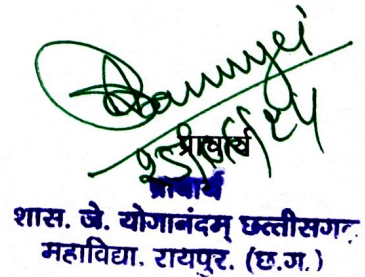 प्राचार्य
प्राचार्य
शास. जे. योगानंदम् छत्तीसगढ़
महाविद्या. रायपुर. (छ.ग.)